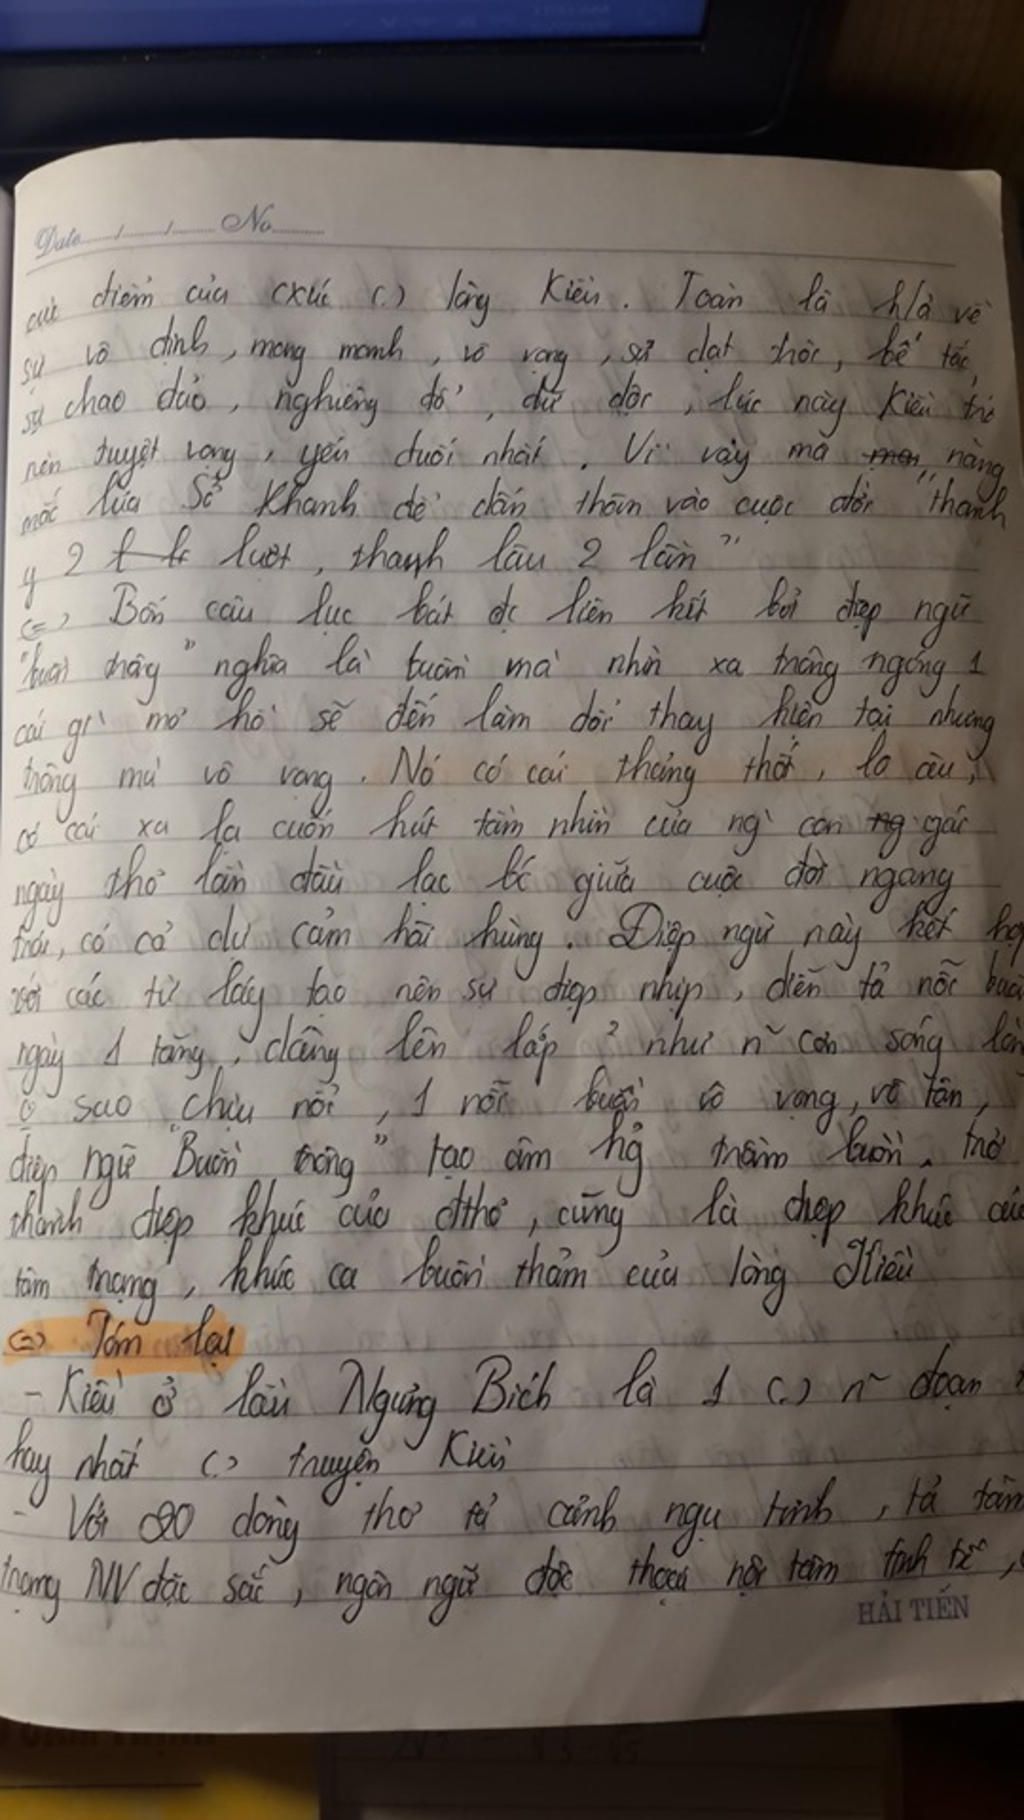 Date....../....../........ No..........
điểm của cxúc (.) lòng Kiều. Toàn là h/ả về
sự vô định, mong manh, vô vọng, sự dạt trôi, bế tắc,
sự chao đảo, nghiêng đổ, dữ dội, lúc này Kiều trở
nên tuyệt vọng, yếu đuối nhất. Vì vậy mà nàng
mắc lừa Sở Khanh để dấn thân vào cuộc đời "thanh
y 2 lượt, thanh lâu 2 lần"
(=) Bốn câu lục bát đc liên kết bởi điệp ngữ
"buồn trông" nghĩa là buồn mà nhìn xa trông ngóng 1
cái gì mơ hồ sẽ đến làm đổi thay hiện tại nhưng
trông mà vô vọng. Nó có cái thảng thốt, lo âu,
có cái xa lạ cuốn hút tầm nhìn của ng` con gái
ngây thơ lần đầu lạc bc giữa cuộc đời ngang
trái, có cả dự cảm hãi hùng. Điệp ngữ này kết hợp
với các từ láy tạo nên sự điệp nhịp, diễn tả nỗi buồn
ngày 1 tăng, dâng lên lớp ² như n~ cơn sóng lòng
ō sao chịu nổi, 1 nỗi buồn vô vọng, vô tận,
điệp ngữ "Buồn trông" tạo âm hg̉ trầm buồn, trở
thành điệp khúc của đthơ, cũng là điệp khúc của
tâm trạng, khúc ca buồn thảm của lòng Kiều
(=) Tóm lại
- Kiều ở lầu Ngưng Bích là 1 (.) n~ đoạn
hay nhất (.) truyện Kiều
- Với 20 dòng thơ tả cảnh ngụ tình, tả tâm
trạng NV đặc sắc, ngôn ngữ độc thoại nội tâm tinh tế,
HẢI TIẾN